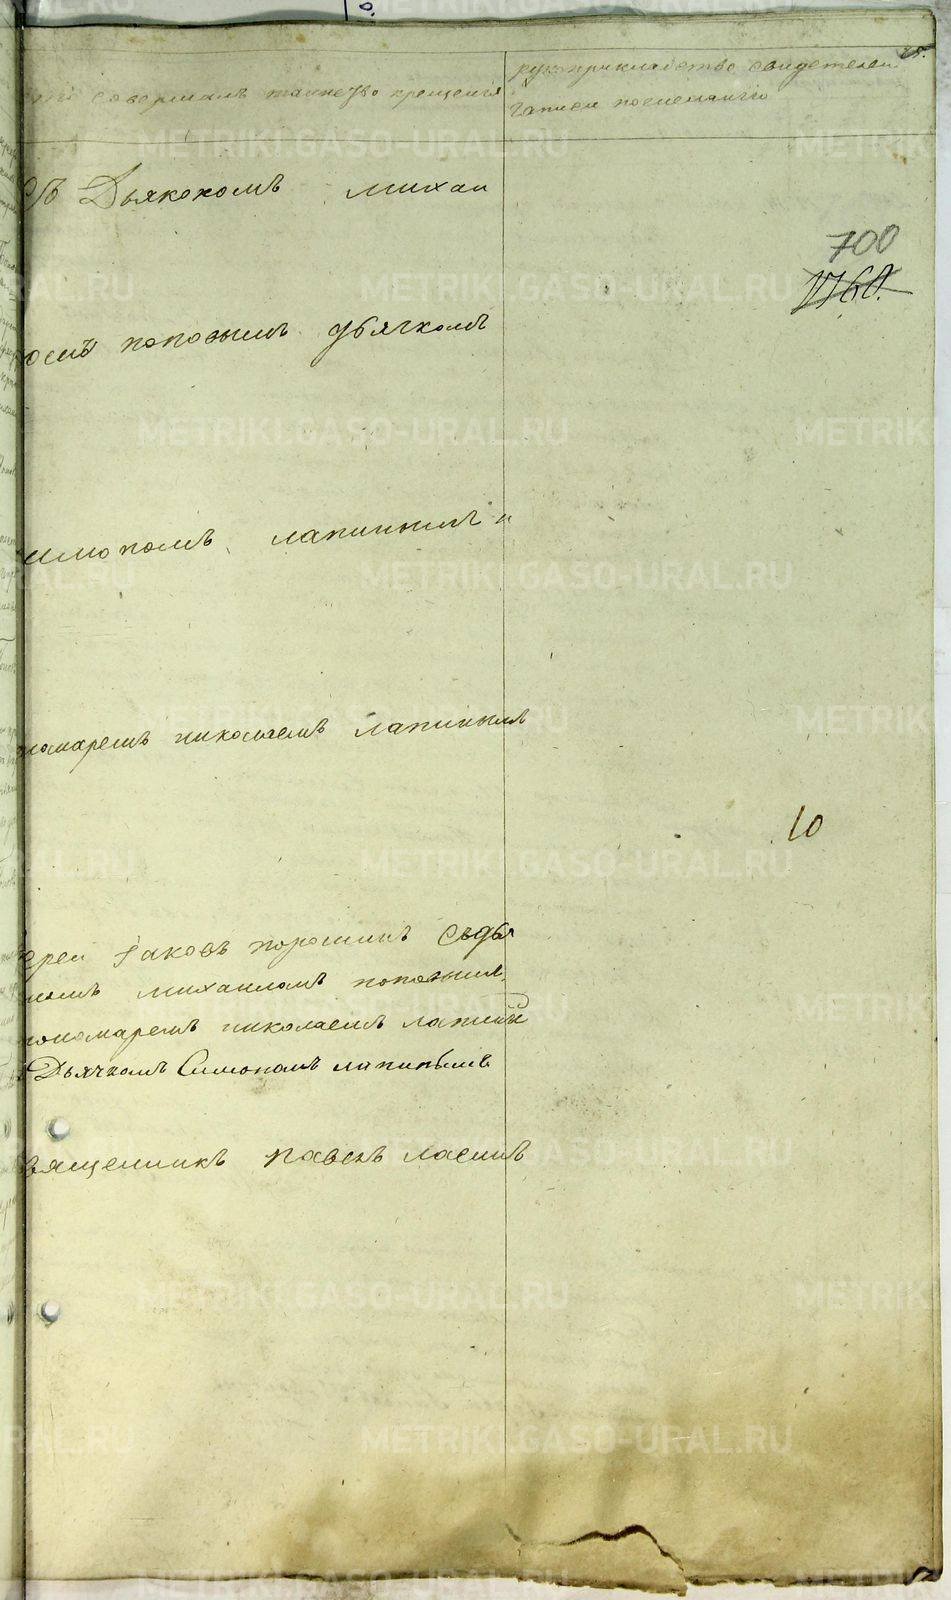 75.
кто совершалъ таинство крещения
рукоприкладство свидетелей
записи по желанию
съ Дьякономъ михаи
700
1760.
ломъ поповымъ дьячкомъ
симономъ лапинымъ и
пономаремъ николаемъ лапинымъ
10
ерей Iаковъ порошинъ Съдья
номъ михаиломъ поповымъ
пономаремъ николаемъ лапины
Дьячкомъ Симономъ лапинымъ
вященникъ павелъ
METRIKI.GASO-URAL.RU